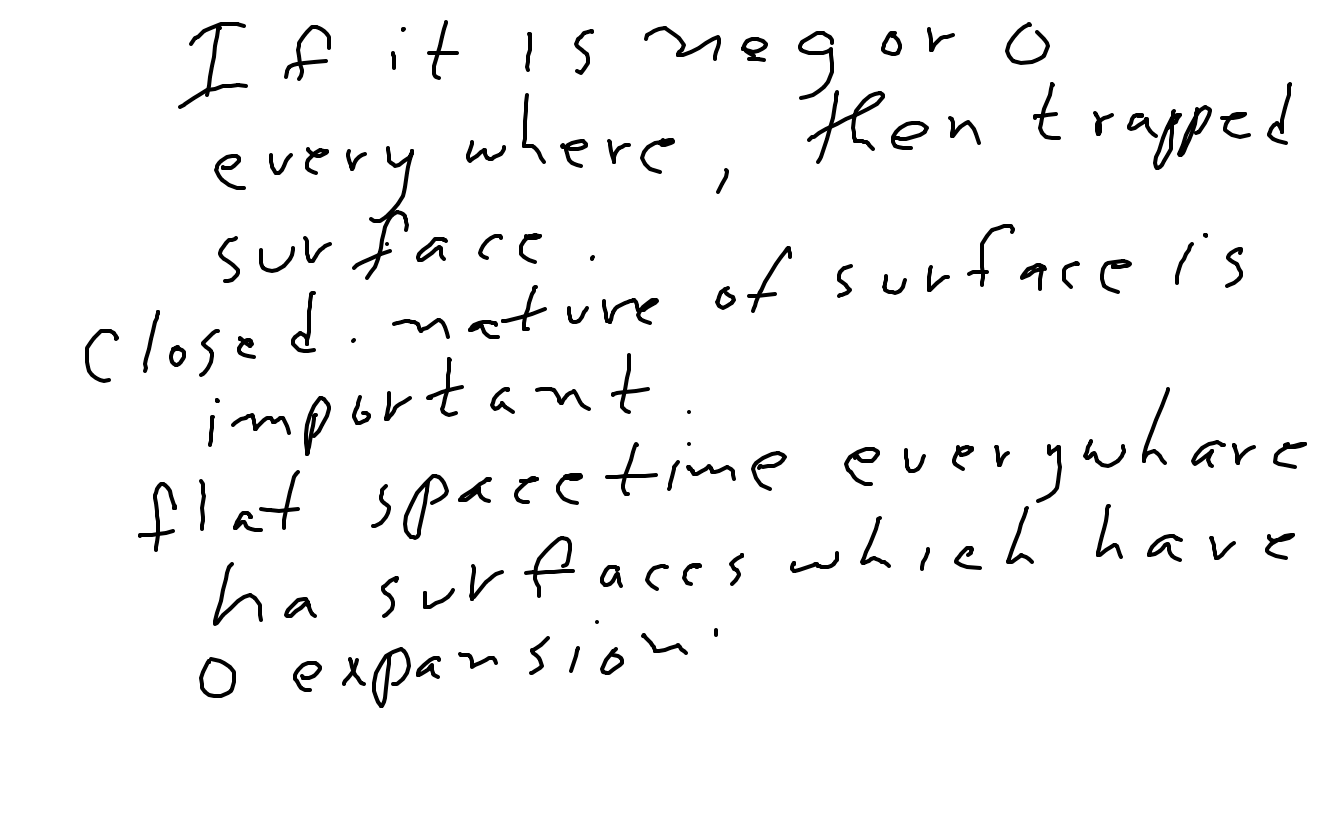 If it is neg or 0
everywhere, then trapped
surface.
Closed. nature of surface is
important.
flat spacetime everywhare
ha surfaces which have
0 expansion.